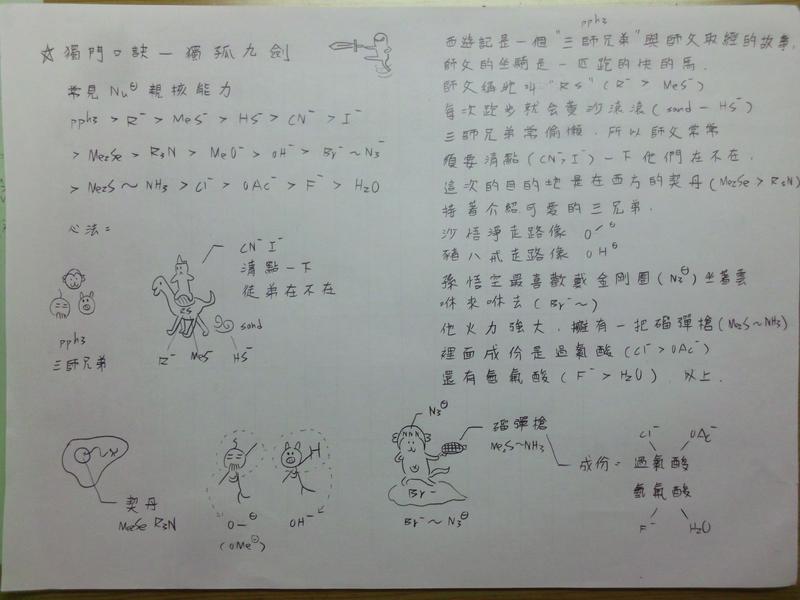 ☆獨門口訣－獨孤九劍
常見 Nu⊖ 親核能力
pph3 > R⁻ > MeS⁻ > HS⁻ > CN⁻ > I⁻
> Me2Se > R3N > MeO⁻ > OH⁻ > Br⁻ ~ N3⁻
> Me2S ~ NH3 > Cl⁻ > OAc⁻ > F⁻ > H2O
心法:
CN⁻ I⁻
清點一下
徒弟在不在
sand
RS
R⁻ MeS⁻ HS⁻
pph3
三師兄弟
pph3
西遊記是一個"三師兄弟"與師父取經的故事.
師父的坐騎是一匹跑的快的馬.
師父稱牠叫"RS" (R⁻ > MeS⁻)
每次跑步就会黃沙滾滾 (sand — HS⁻)
三師兄弟常偷懶. 所以師父常常
須要清點 (CN⁻, I⁻) 一下他們在不在.
這次的目的地是在西方的契丹 (Me2Se > R3N)
接著介紹可愛的三兄弟.
沙悟淨走路像 O-⊖
豬八戒走路像 OH⊖
孫悟空最喜歡戴金剛圈 (N3⊖) 坐著雲
咻來咻去 (Br⁻~)
他火力強大, 擁有一把榴彈槍 (Me2S~NH3)
裡面成份是過氯酸 (Cl⁻ > OAc⁻)
還有氫氟酸 (F⁻ > H2O). 以上.
契丹
Me2Se R3N
O—⊖
(OMe⊖)
H
OH⁻
N3⊖
榴彈槍
Me2S~NH3
Br⁻
Br⁻~N3⊖
成份=
Cl⁻ OAc⁻
過氯酸
氫氟酸
F⁻ H2O